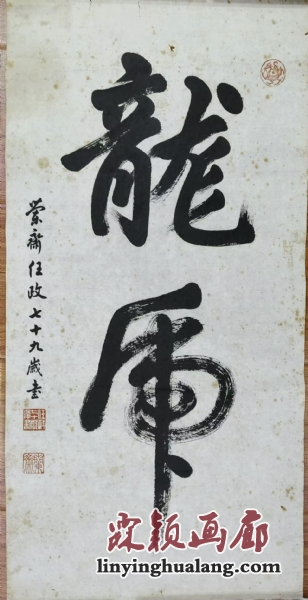 龍虎
蘭齋任政七十九歲書
霖颖画廊
linyinghualang.com